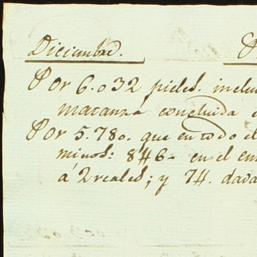 Diciembre.
Por 6.032 pieles. inclu
matanza concluida
Por 5.780. que en todo el
minos: 846- en el em
á 2 reales; y 74. dava